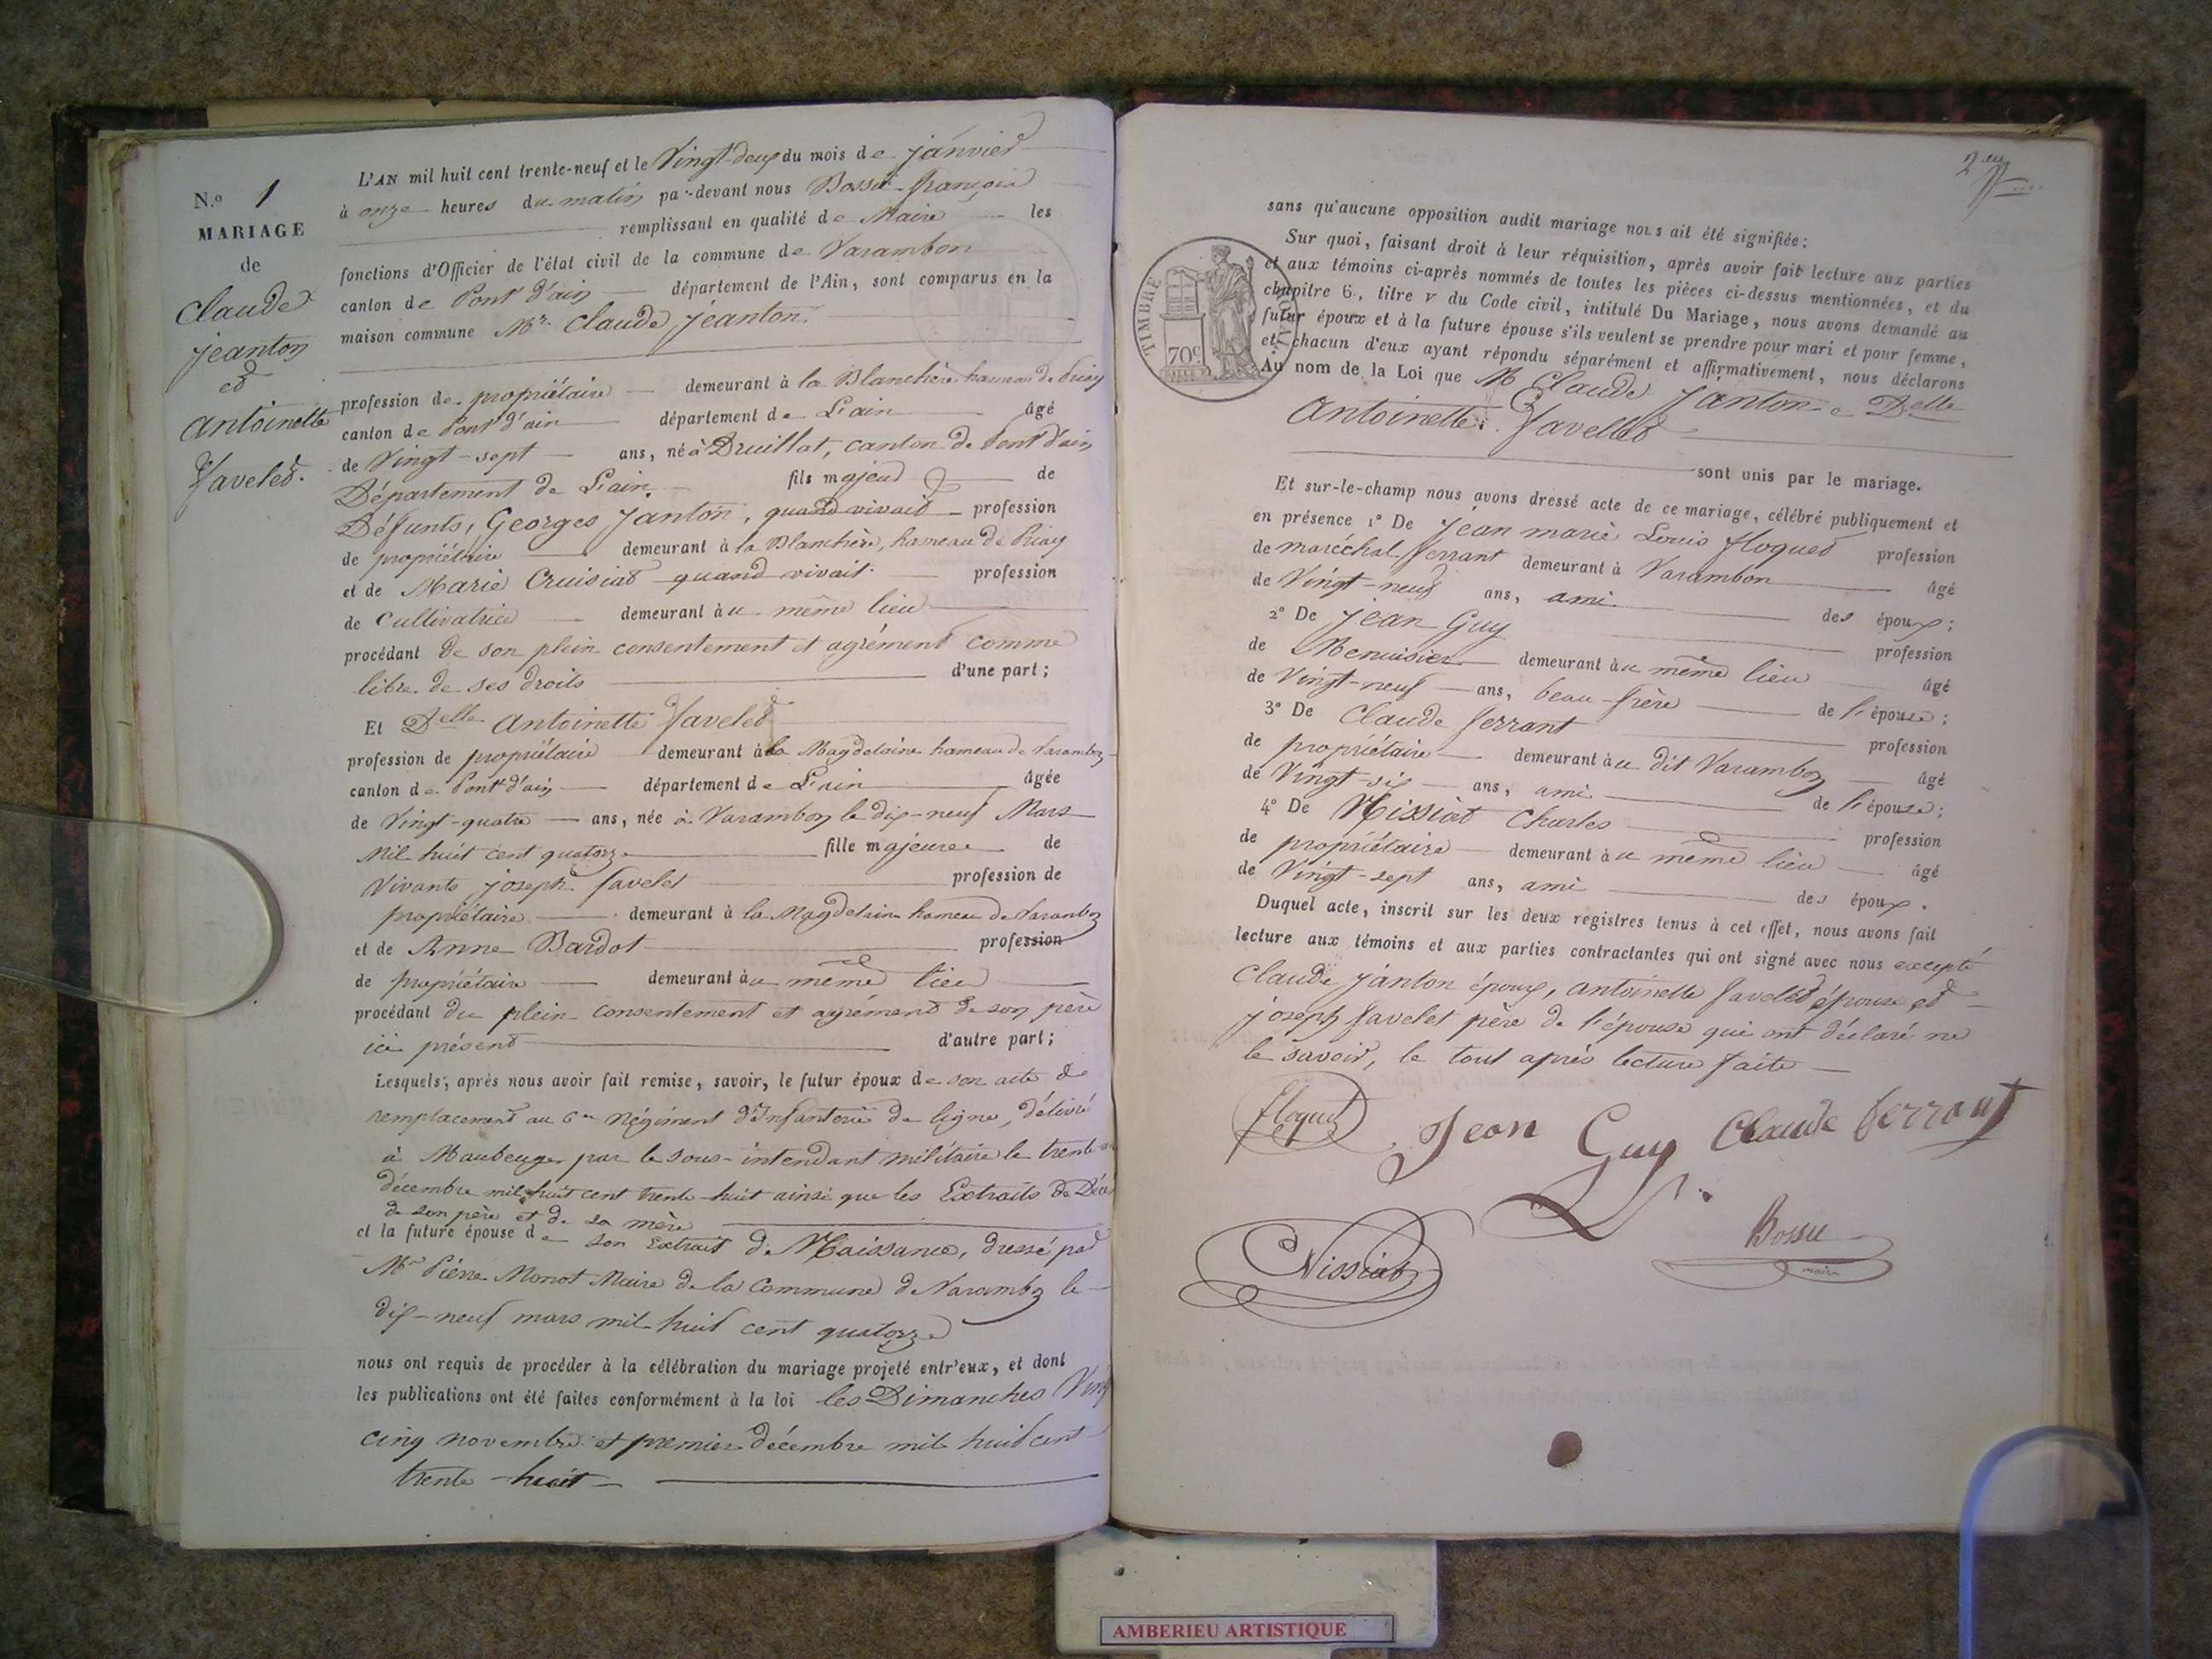 N.o 1
MARIAGE
de
Claude
Jeanton
et
Antoinette
Favelet.
L'AN mil huit cent trente-neuf et le Vingt-deux du mois de janvier
à onze heures du matin par-devant nous Bossu françois
remplissant en qualité de Maire les
fonctions d'Officier de l'état civil de la commune de Varambon
canton de Pont d'ain département de l'Ain, sont comparus en la
maison commune Mr. Claude Jeanton
profession de propriétaire demeurant à la Blanchère hameau de Priay
canton de Pont d'ain département de L'ain âgé
de Vingt-sept ans, né à Druillat, canton de Pont d'ain
Département de L'ain, fils majeur de
Défunts, Georges Janton, quand vivait profession
de propriétaire demeurant à la Blanchère, hameau de Priay
et de Marie Cruisiat quand vivait profession
de Cultivatrice demeurant au même lieu
procédant de son plein consentement et agrément comme
libre de ses droits d'une part;
Et Delle Antoinette Favelet
profession de propriétaire demeurant à la Magdelaine hameau de Varambon
canton de Pont d'ain département de L'ain âgée
de Vingt-quatre ans, née à Varambon le dix-neuf Mars
Mil huit cent quatorze fille majeure de
Vivants joseph favelet profession de
propriétaire demeurant à la Magdelaine hameau de Varambon
et de Anne Bardot profession
de propriétaire demeurant au même lieu
procédant du plein consentement et agrément de son père
ici présent d'autre part;
Lesquels, après nous avoir fait remise, savoir, le futur époux de son acte de
remplacement au 6me Régiment d'Infanterie de ligne, délivré
à Maubeuge par le sous-intendant militaire le trente
décembre mil huit cent trente-huit ainsi que les Extraits de Décès
de son père et de sa mère
et la future épouse de son Extrait de Naissance, dressé par
Mr Pierre Monot Maire de la Commune de Varambon le
dix-neuf mars mil huit cent quatorze
nous ont requis de procéder à la célébration du mariage projeté entr'eux, et dont
les publications ont été faites conformément à la loi les Dimanches Vingt
cinq novembre et premier décembre mil huit cent
trente-huit
sans qu'aucune opposition audit mariage nous ait été signifiée:
Sur quoi, faisant droit à leur réquisition, après avoir fait lecture aux parties
et aux témoins ci-après nommés de toutes les pièces ci-dessus mentionnées, et du
chapitre 6, titre v du Code civil, intitulé Du Mariage, nous avons demandé au
futur époux et à la future épouse s'ils veulent se prendre pour mari et pour femme,
et chacun d'eux ayant répondu séparément et affirmativement, nous déclarons
Au nom de la Loi que M Claude Janton e Delle
Antoinette Favellet
sont unis par le mariage.
TIMBRE ROYAL
70c
Et sur-le-champ nous avons dressé acte de ce mariage, célébré publiquement et
en présence 1° De Jean marie Louis floquet profession
de maréchal ferrant demeurant à Varambon âgé
de Vingt-neuf ans, ami des époux;
2° De Jean Guy profession
de Menuisier demeurant au même lieu âgé
de Vingt-neuf ans, beau-frère de l'épouse;
3° De Claude ferrant profession
de propriétaire demeurant au dit Varambon âgé
de Vingt-six ans, ami de l'épouse;
4° De Nissiat Charles profession
de propriétaire demeurant au même lieu âgé
de Vingt-sept ans, ami des époux.
Duquel acte, inscrit sur les deux registres tenus à cet effet, nous avons fait
lecture aux témoins et aux parties contractantes qui ont signé avec nous excepté
Claude Janton époux, antoinette favelet épouse et
joseph favelet père de l'épouse qui ont déclaré ne
le savoir, le tout après lecture faite
floquet
Jean Guy
Claude ferrant
CNissiat
Bossu
maire
AMBERIEU ARTISTIQUE